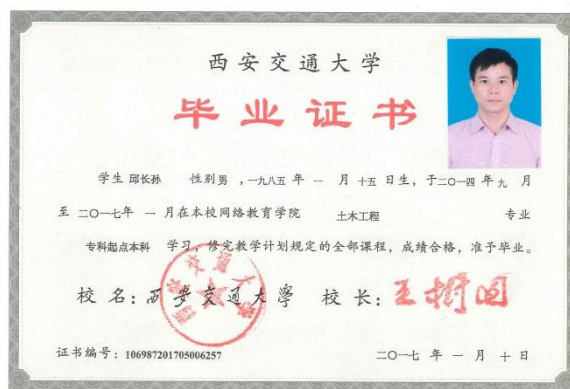 西安交通大学
毕业证书
学生 邱长孙 性别 男 ,一九八五 年 一 月 十五 日生, 于二〇一四 年 九 月
至 二〇一七 年 一 月在本校网络教育学院 土木工程 专业
专科起点本科 学习, 修完教学计划规定的全部课程, 成绩合格, 准予毕业。
校 名: 西安交通大学 校 长: 王树国
证书编号: 106987201705006257 二〇一七 年 一 月 十 日